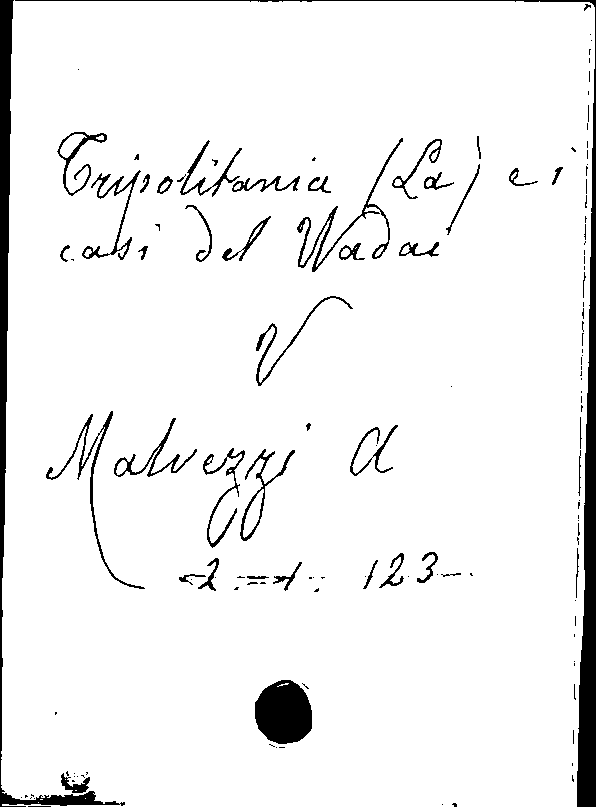 Tripolitania (La) e i
casi del Wadai
V
Malvezzi A
2. 1. 123